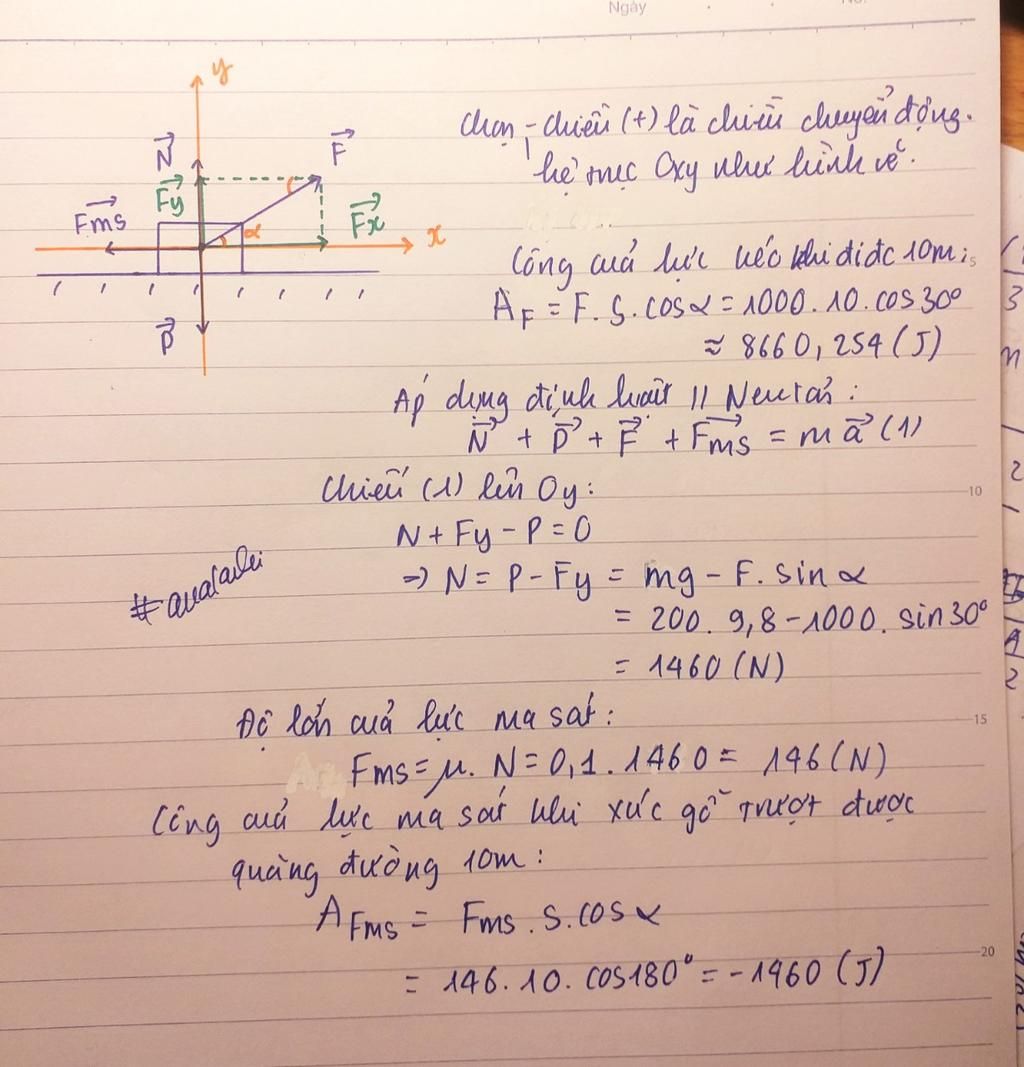 Ngày
y
N
F
Fy
Fms
α
Fx
x
P
Chọn - chiều (+) là chiều chuyển động.
hệ trục Oxy như hình vẽ.
Công của lực kéo khi đi đc 10m:
A_F = F. S. cosα = 1000. 10. cos 30°
≈ 8660,254 (J)
Áp dụng định luật II Newton:
N + P + F + Fms = m a (1)
Chiếu (1) lên Oy:
N + Fy - P = 0
=> N = P - Fy = mg - F. sin α
= 200. 9,8 - 1000. sin 30°
= 1460 (N)
Độ lớn của lực ma sát:
Fms = μ. N = 0,1. 1460 = 146 (N)
Công của lực ma sát khi xúc gỗ trượt được
quãng đường 10m:
A Fms = Fms . S. cos α
= 146. 10. cos 180° = -1460 (J)
10
15
20